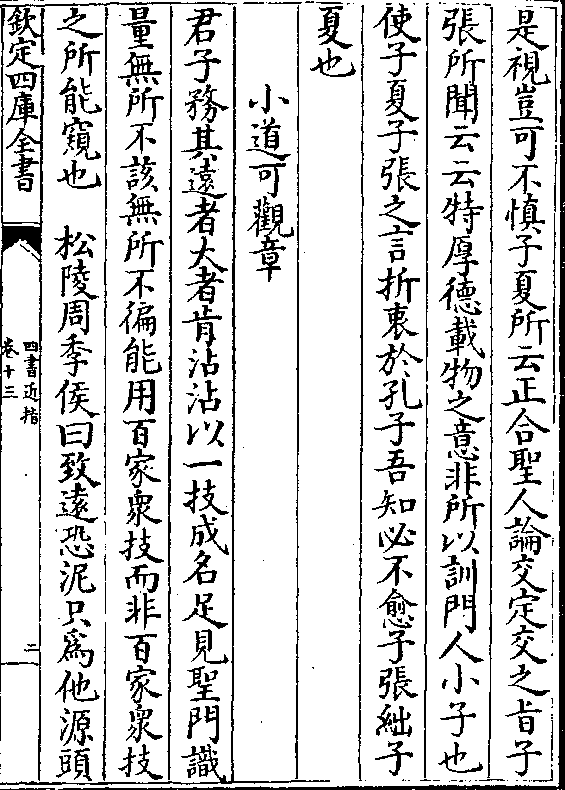 是視豈可不慎子夏所云正合聖人論交定交之旨子
張所聞云云特厚德載物之意非所以訓門人小子也
使子夏子張之言折衷於孔子吾知必不愈子張絀子
夏也
小道可觀章
君子務其遠者大者肯沾沾以一技成名足見聖門識
量無所不該無所不徧能用百家衆技而非百家衆技
之所能窺也　松陵周季侯曰致遠恐泥只為他源頭
欽定四庫全書
四書近指
卷十三
二